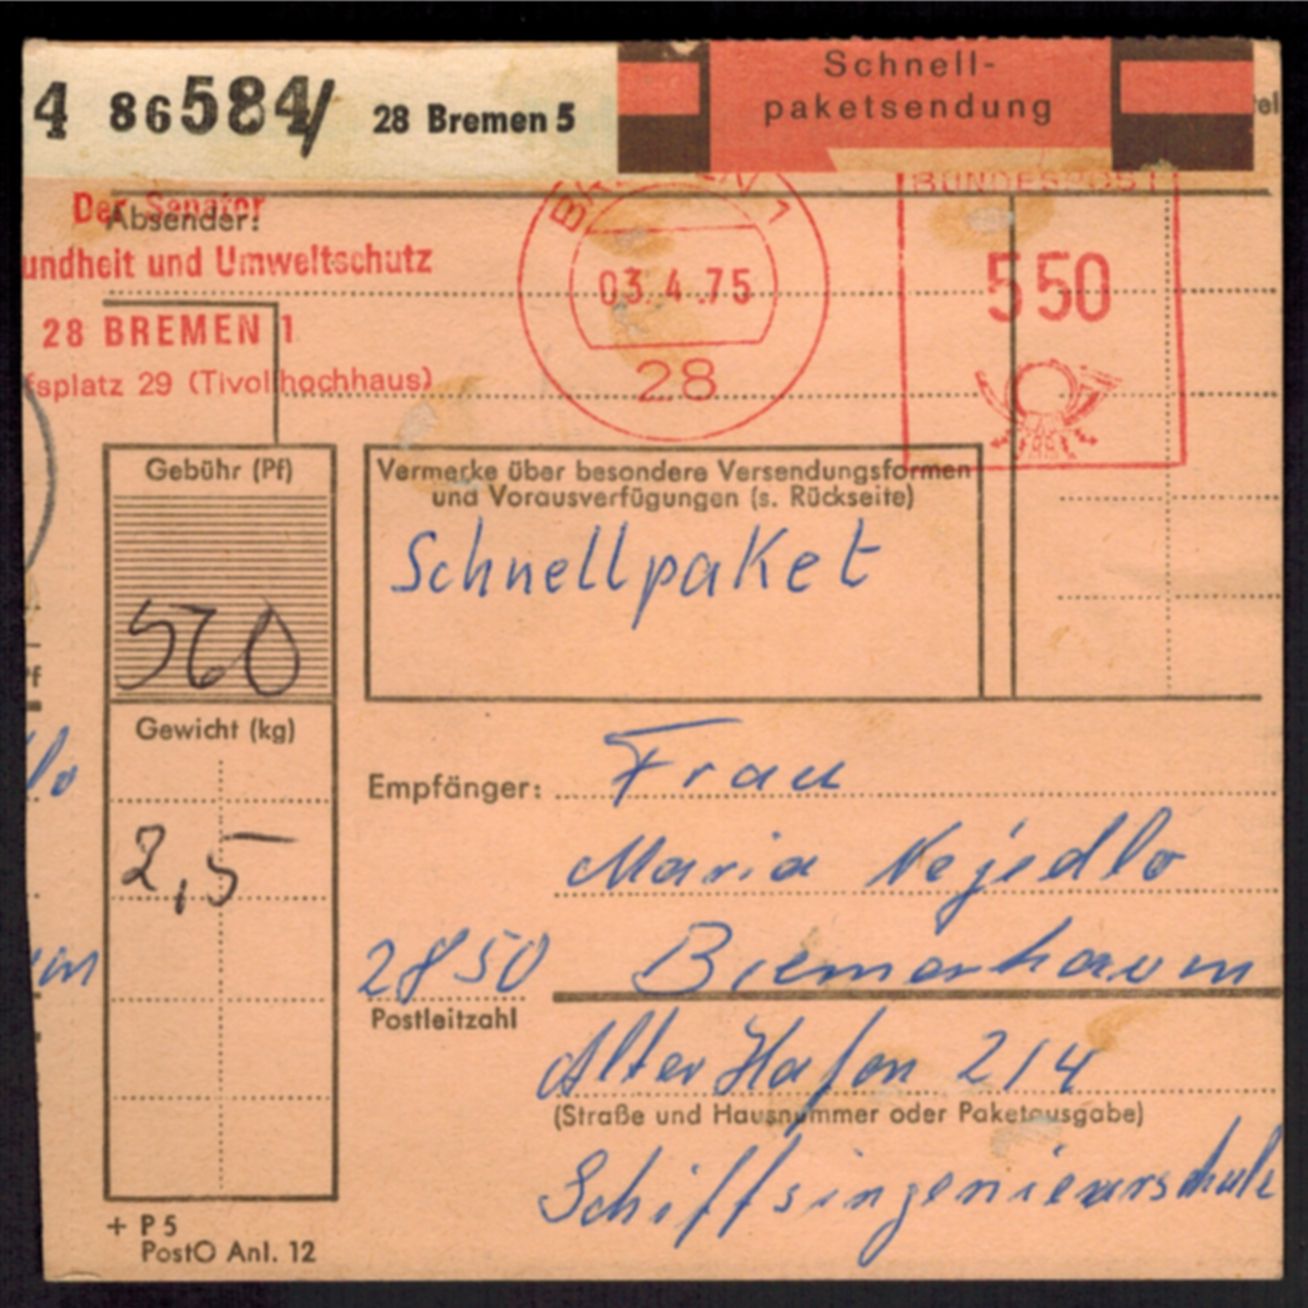 4 86584/ 28 Bremen 5
Schnell-
paketsendung
Der Senator
Absender:
undheit und Umweltschutz
28 BREMEN 1
fsplatz 29 (Tivolihochhaus)
03.4.75
28
BUNDESPOST
550
Gebühr (Pf)
Vermerke über besondere Versendungsformen
und Vorausverfügungen (s. Rückseite)
Schnellpaket
Gewicht (kg)
2,5
Empfänger: Frau
Maria Nejedlo
2850 Bremerhaven
Postleitzahl
Alter Hafen 214
(Straße und Hausnummer oder Paketausgabe)
Schiffsingenieurschule
+ P 5
PostO Anl. 12